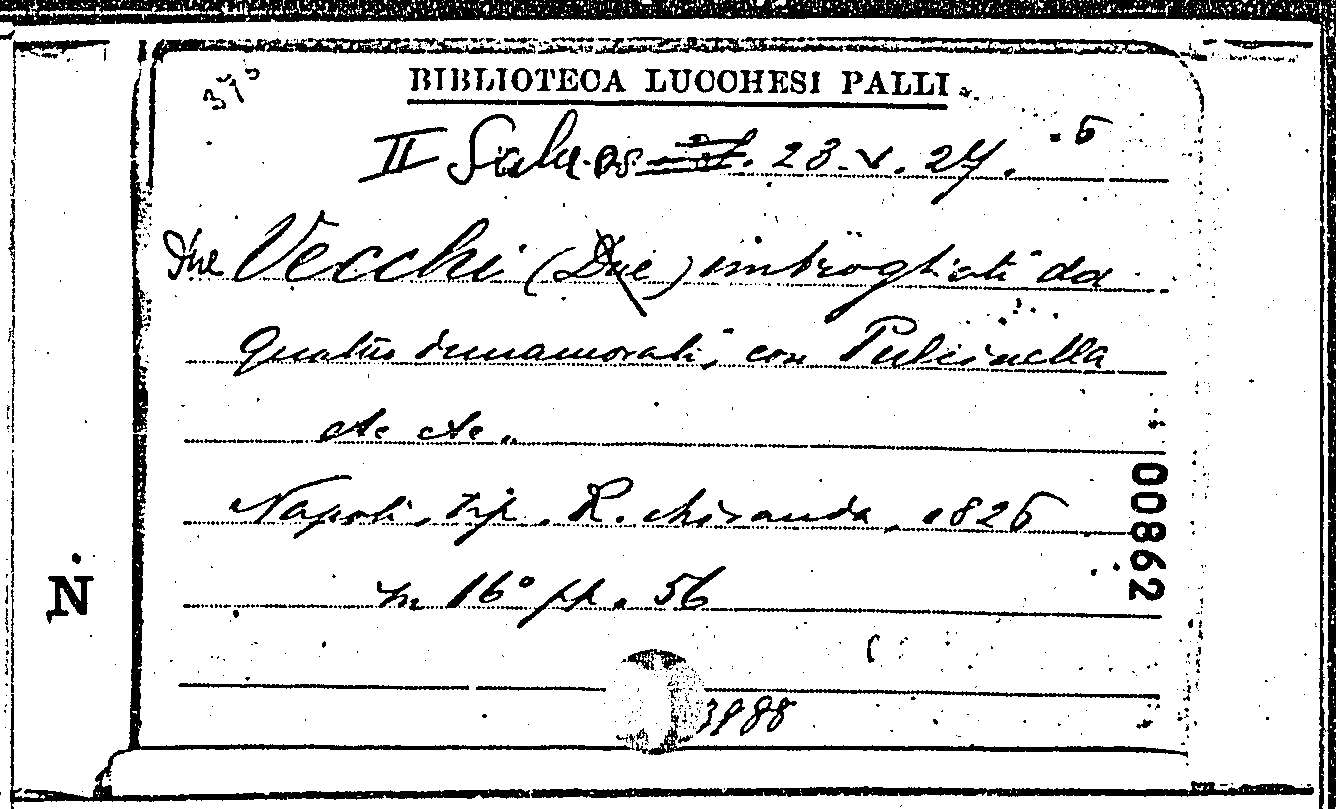 375
BIBLIOTECA LUCCHESI PALLI
II Sala. 23. V. 27. 5
Due Vecchi (Due) imbrogliati da
quattro innamorati, con Pulcinella
etc etc.
Napoli, tip. R. Miranda, 1826
in 16° pp. 56
3988
00862
N